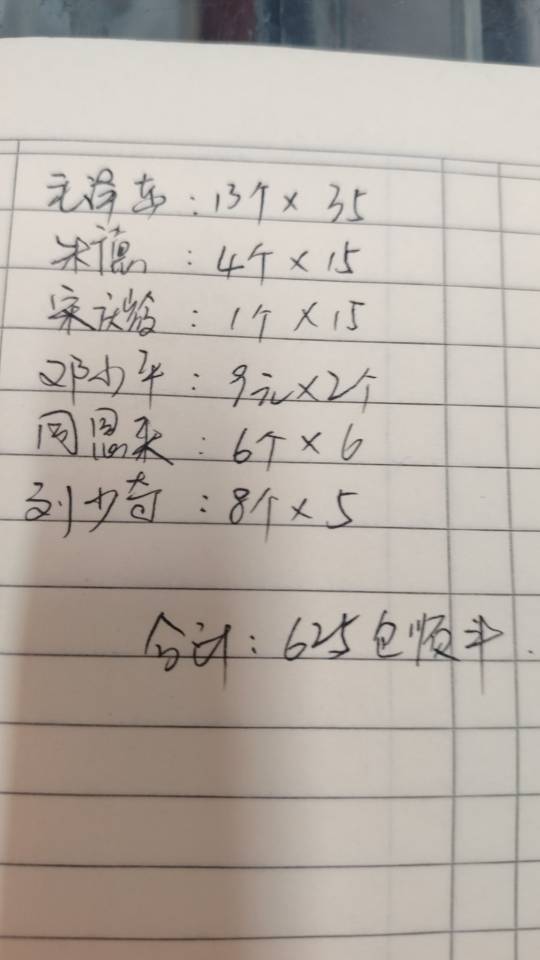 毛泽东：13个×35
朱德：4个×15
宋庆龄：1个×15
邓小平：9元×2个
周恩来：6个×6
刘少奇：8个×5
合计：625包顺丰.